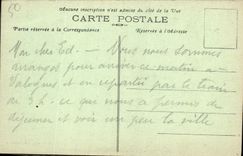 50
Aucune inscription n'est admise du côté de la Vue
CARTE POSTALE
Partie réservée à la Correspondance
Réservée à l'Adresse
Ed. — Nous nous sommes
arrangés pour arriver ce matin à
et en repartir par le train
de 3 h. ce que nous a permis de
déjeuner et voir un peu la ville